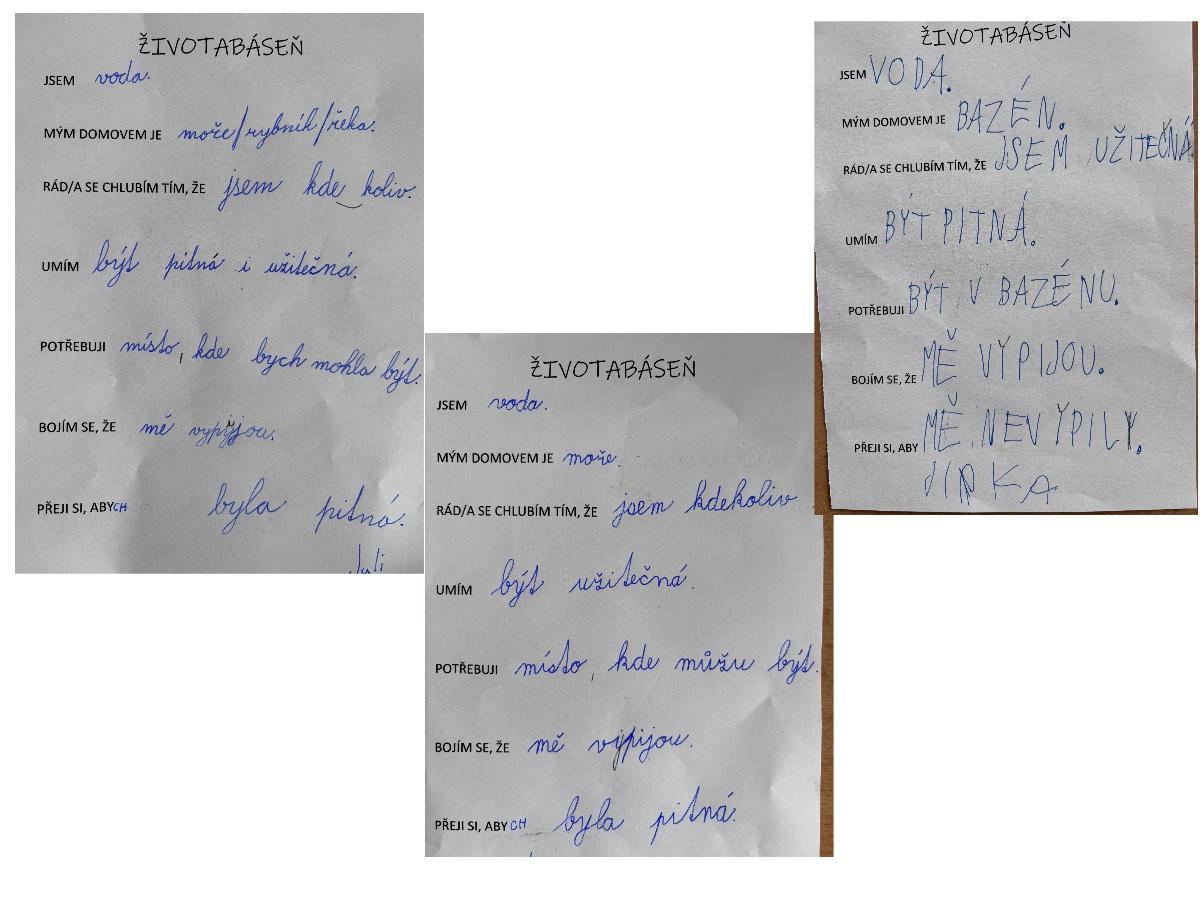 ŽIVOTABÁSEŇ
JSEM voda.
MÝM DOMOVEM JE moře/rybník/řeka.
RÁD/A SE CHLUBÍM TÍM, ŽE jsem kde koliv.
UMÍM být pitná i užitečná.
POTŘEBUJI místo, kde bych mohla být.
BOJÍM SE, ŽE mě vypijou.
PŘEJI SI, ABYCH byla pitná.
Juli
ŽIVOTABÁSEŇ
JSEM voda.
MÝM DOMOVEM JE moře.
RÁD/A SE CHLUBÍM TÍM, ŽE jsem kdekoliv
UMÍM být užitečná.
POTŘEBUJI místo, kde můžu být.
BOJÍM SE, ŽE mě vypijou.
PŘEJI SI, ABYCH byla pitná.
ŽIVOTABÁSEŇ
JSEM VODA.
MÝM DOMOVEM JE BAZÉN.
RÁD/A SE CHLUBÍM TÍM, ŽE JSEM UŽITEČNÁ
UMÍM BÝT PITNÁ.
POTŘEBUJI BÝT V BAZÉNU.
BOJÍM SE, ŽE MĚ VYPIJOU.
PŘEJI SI, ABY MĚ NEVYPILY.
JIRKA